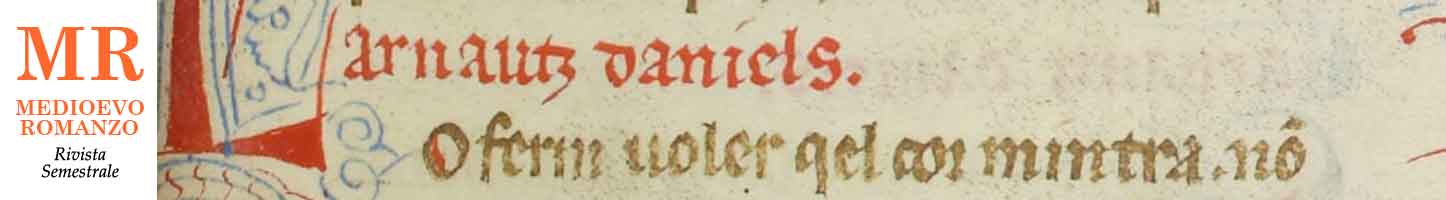 MR
MEDIOEVO
ROMANZO
Rivista
Semestrale
L
arnautz daniels.
O ferm uoler qel cor mintra. nō